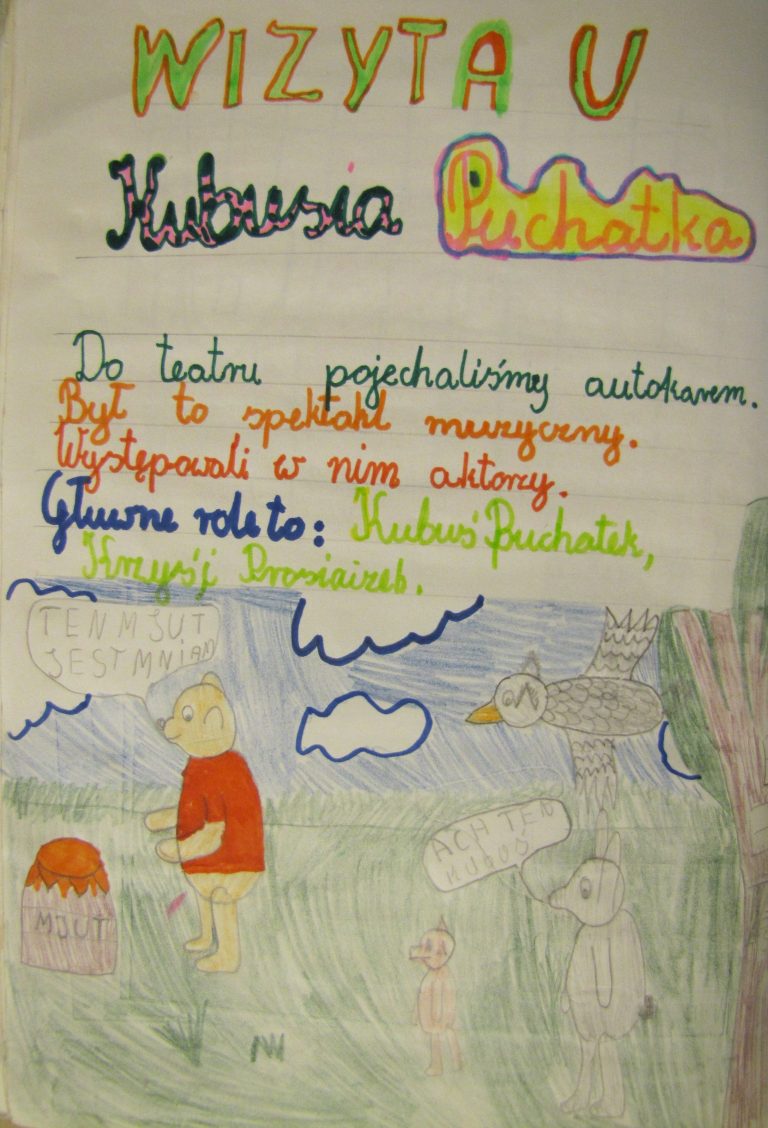 WIZYTA U
Kubusia Puchatka
Do teatru pojechaliśmy autokarem.
Był to spektakl muzyczny.
Występowali w nim aktorzy.
Głuwne role to: Kubuś Puchatek,
Krzyś i Prosiaizek.
TEN MJUT
JEST MNIAM
ACH TEN
KUBUŚ
MJUT